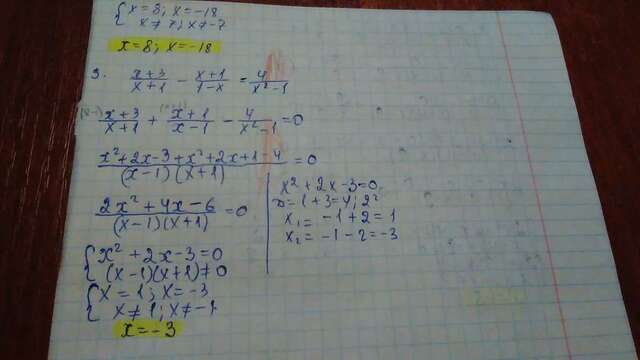 { x = 8; x = -18
x ≠ 7; x ≠ -7
x = 8; x = -18
3. (x+3)/(x+1) - (x+1)/(1-x) = 4/(x²-1)
(x+3)/(x+1) + (x+1)/(x-1) - 4/(x²-1) = 0
(x²+2x-3+x²+2x+1-4)/((x-1)(x+1)) = 0
(2x²+4x-6)/((x-1)(x+1)) = 0
{ x²+2x-3=0
(x-1)(x+1)≠0
{ x = 1; x = -3
x ≠ 1; x ≠ -1
x = -3
x²+2x-3=0
D=1+3=4; 2²
x₁ = -1+2=1
x₂ = -1-2=-3